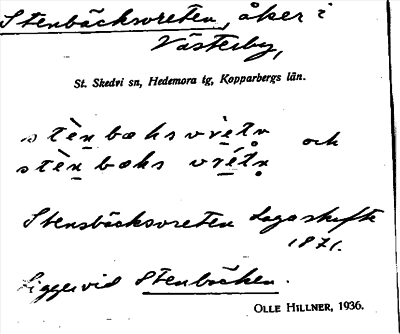 Stenbäcksvreten, åker i
Västerby,
St. Skedvi sn, Hedemora tg, Kopparbergs län.
stèn bæksvrètn och
stèn bæks vrétn
Stensbäcksvreten Laga skifte
1871.
Ligger vid Stenbäcken.
OLLE HILLNER, 1936.